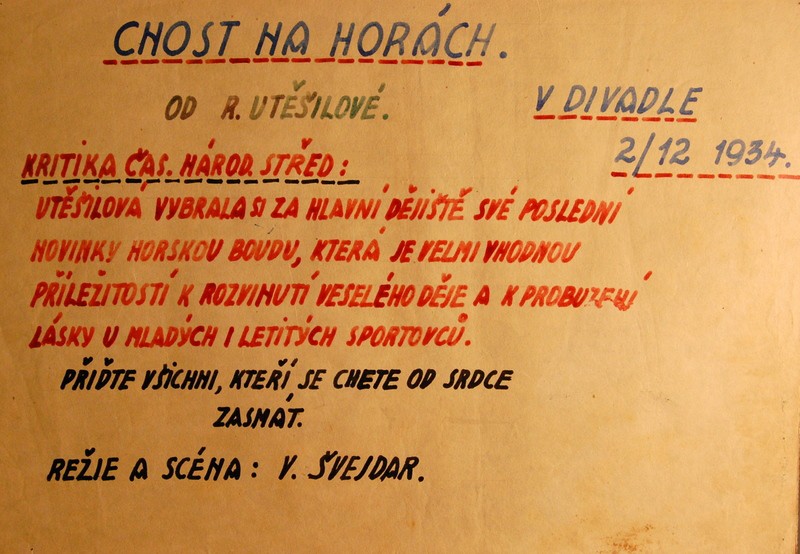 CHOST NA HORÁCH.
OD R. UTĚŠILOVÉ.
V DIVADLE
2/12 1934.
KRITIKA ČAS. NÁROD. STŘED:
UTĚŠILOVÁ VYBRALA SI ZA HLAVNÍ DĚJIŠTĚ SVÉ POSLEDNÍ
NOVINKY HORSKOU BOUDU, KTERÁ JE VELMI VHODNOU
PŘÍLEŽITOSTÍ K ROZVINUTÍ VESELÉHO DĚJE A K PROBUZENÍ
LÁSKY U MLADÝCH I LETITÝCH SPORTOVCŮ.
PŘIĎTE VŠICHNI, KTEŘÍ SE CHETE OD SRDCE
ZASMÁT.
REŽIE A SCÉNA: V. ŠVEJDAR.